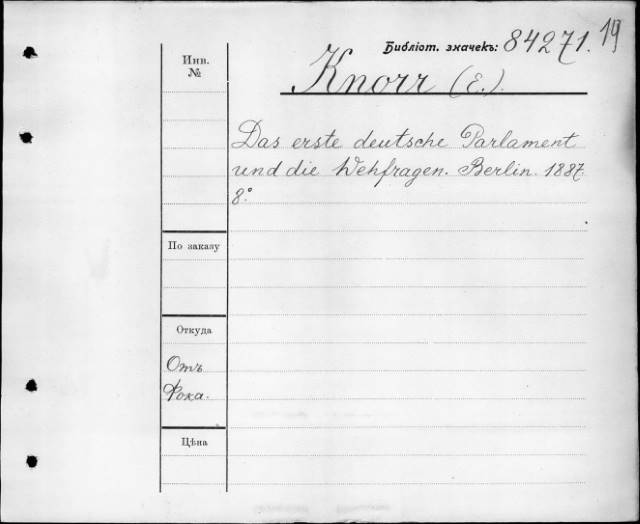 Библіот. значекъ: 84271. 19
Инв. №
Knorr (E.).
Das erste deutsche Parlament
und die Wehfragen. Berlin. 1887.
8°
По заказу
Откуда
Отъ
Рока.
Цѣна